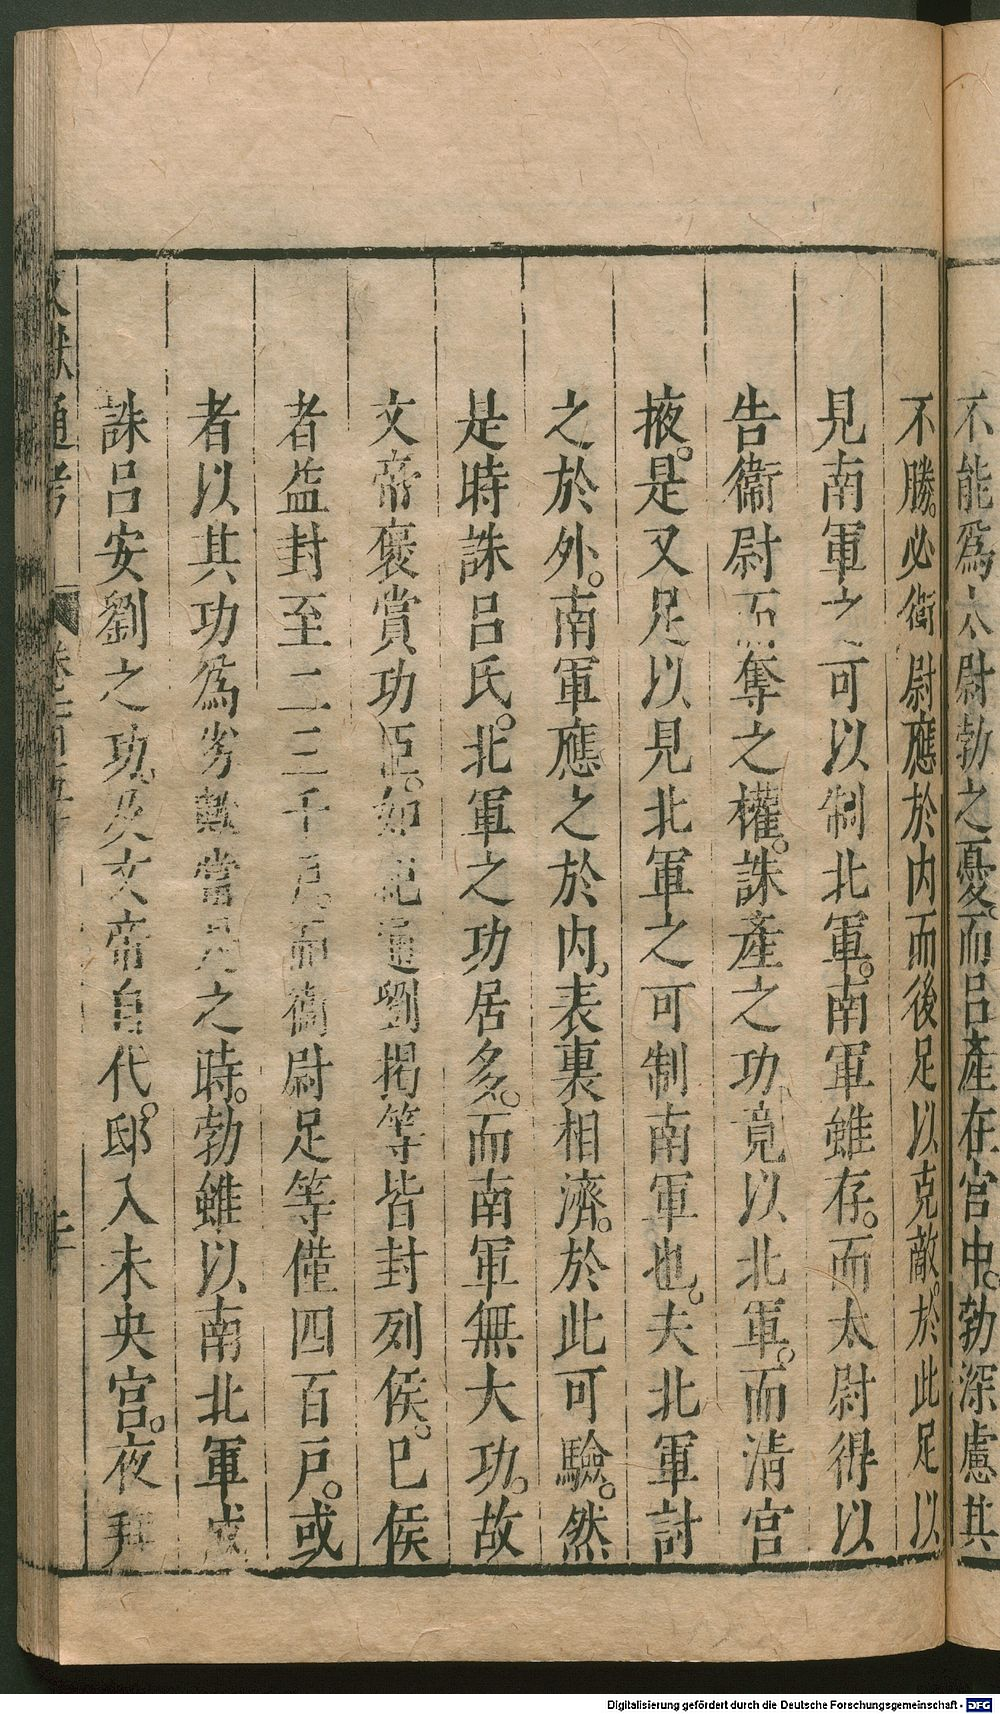 不能爲太尉勃之憂。而呂產在宮中。勃深慮其
不勝。必衛尉應於内而後足以克敵。於此足以
見南軍之可以制北軍。南軍雖存。而太尉得以
告衞尉 奪之權。誅產之功。竟以北軍。而淸宮
掖。是又足以見北軍之可制南軍也。夫北軍討
之於外。南軍應之於内。表裏相濟。於此可驗。然
是時誅呂氏。北軍之功居多。而南軍無大功。故
文帝褒賞功臣。如紀通劉揭等皆封列侯。已侯
者益封至二三千戶。而衞尉足等僅四百戶。或
者以其功爲劣歟當是之時。勃雖以南北軍成
誅呂安劉之功。及文帝自代邸入未央宮。夜拜
文獻通考
Digitalisierung gefördert durch die Deutsche Forschungsgemeinschaft - DFG